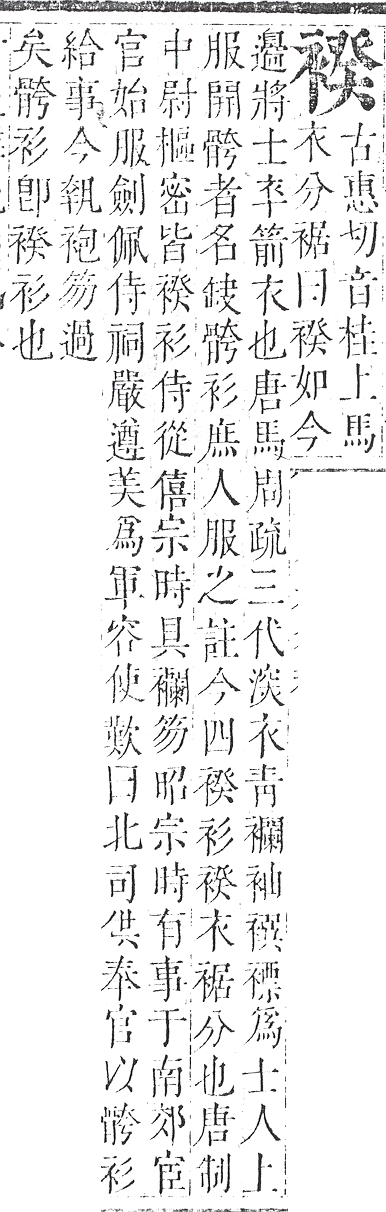 褉
古惠切音桂上馬
衣分裾曰褉如今
邉將士卒箭衣也唐馬周疏三代深衣青襴袖褾襈爲士人上
服開骻者名缺骻衫庶人服之註今四褉衫褉衣裾分也唐制
中尉樞密皆褉衫侍從僖宗時具襴笏昭宗時有事于南郊宦
官始服劍佩侍祠嚴遵美爲軍容使歎曰北司供奉官以骻衫
給事今執袍笏過
矣骻衫卽褉衫也